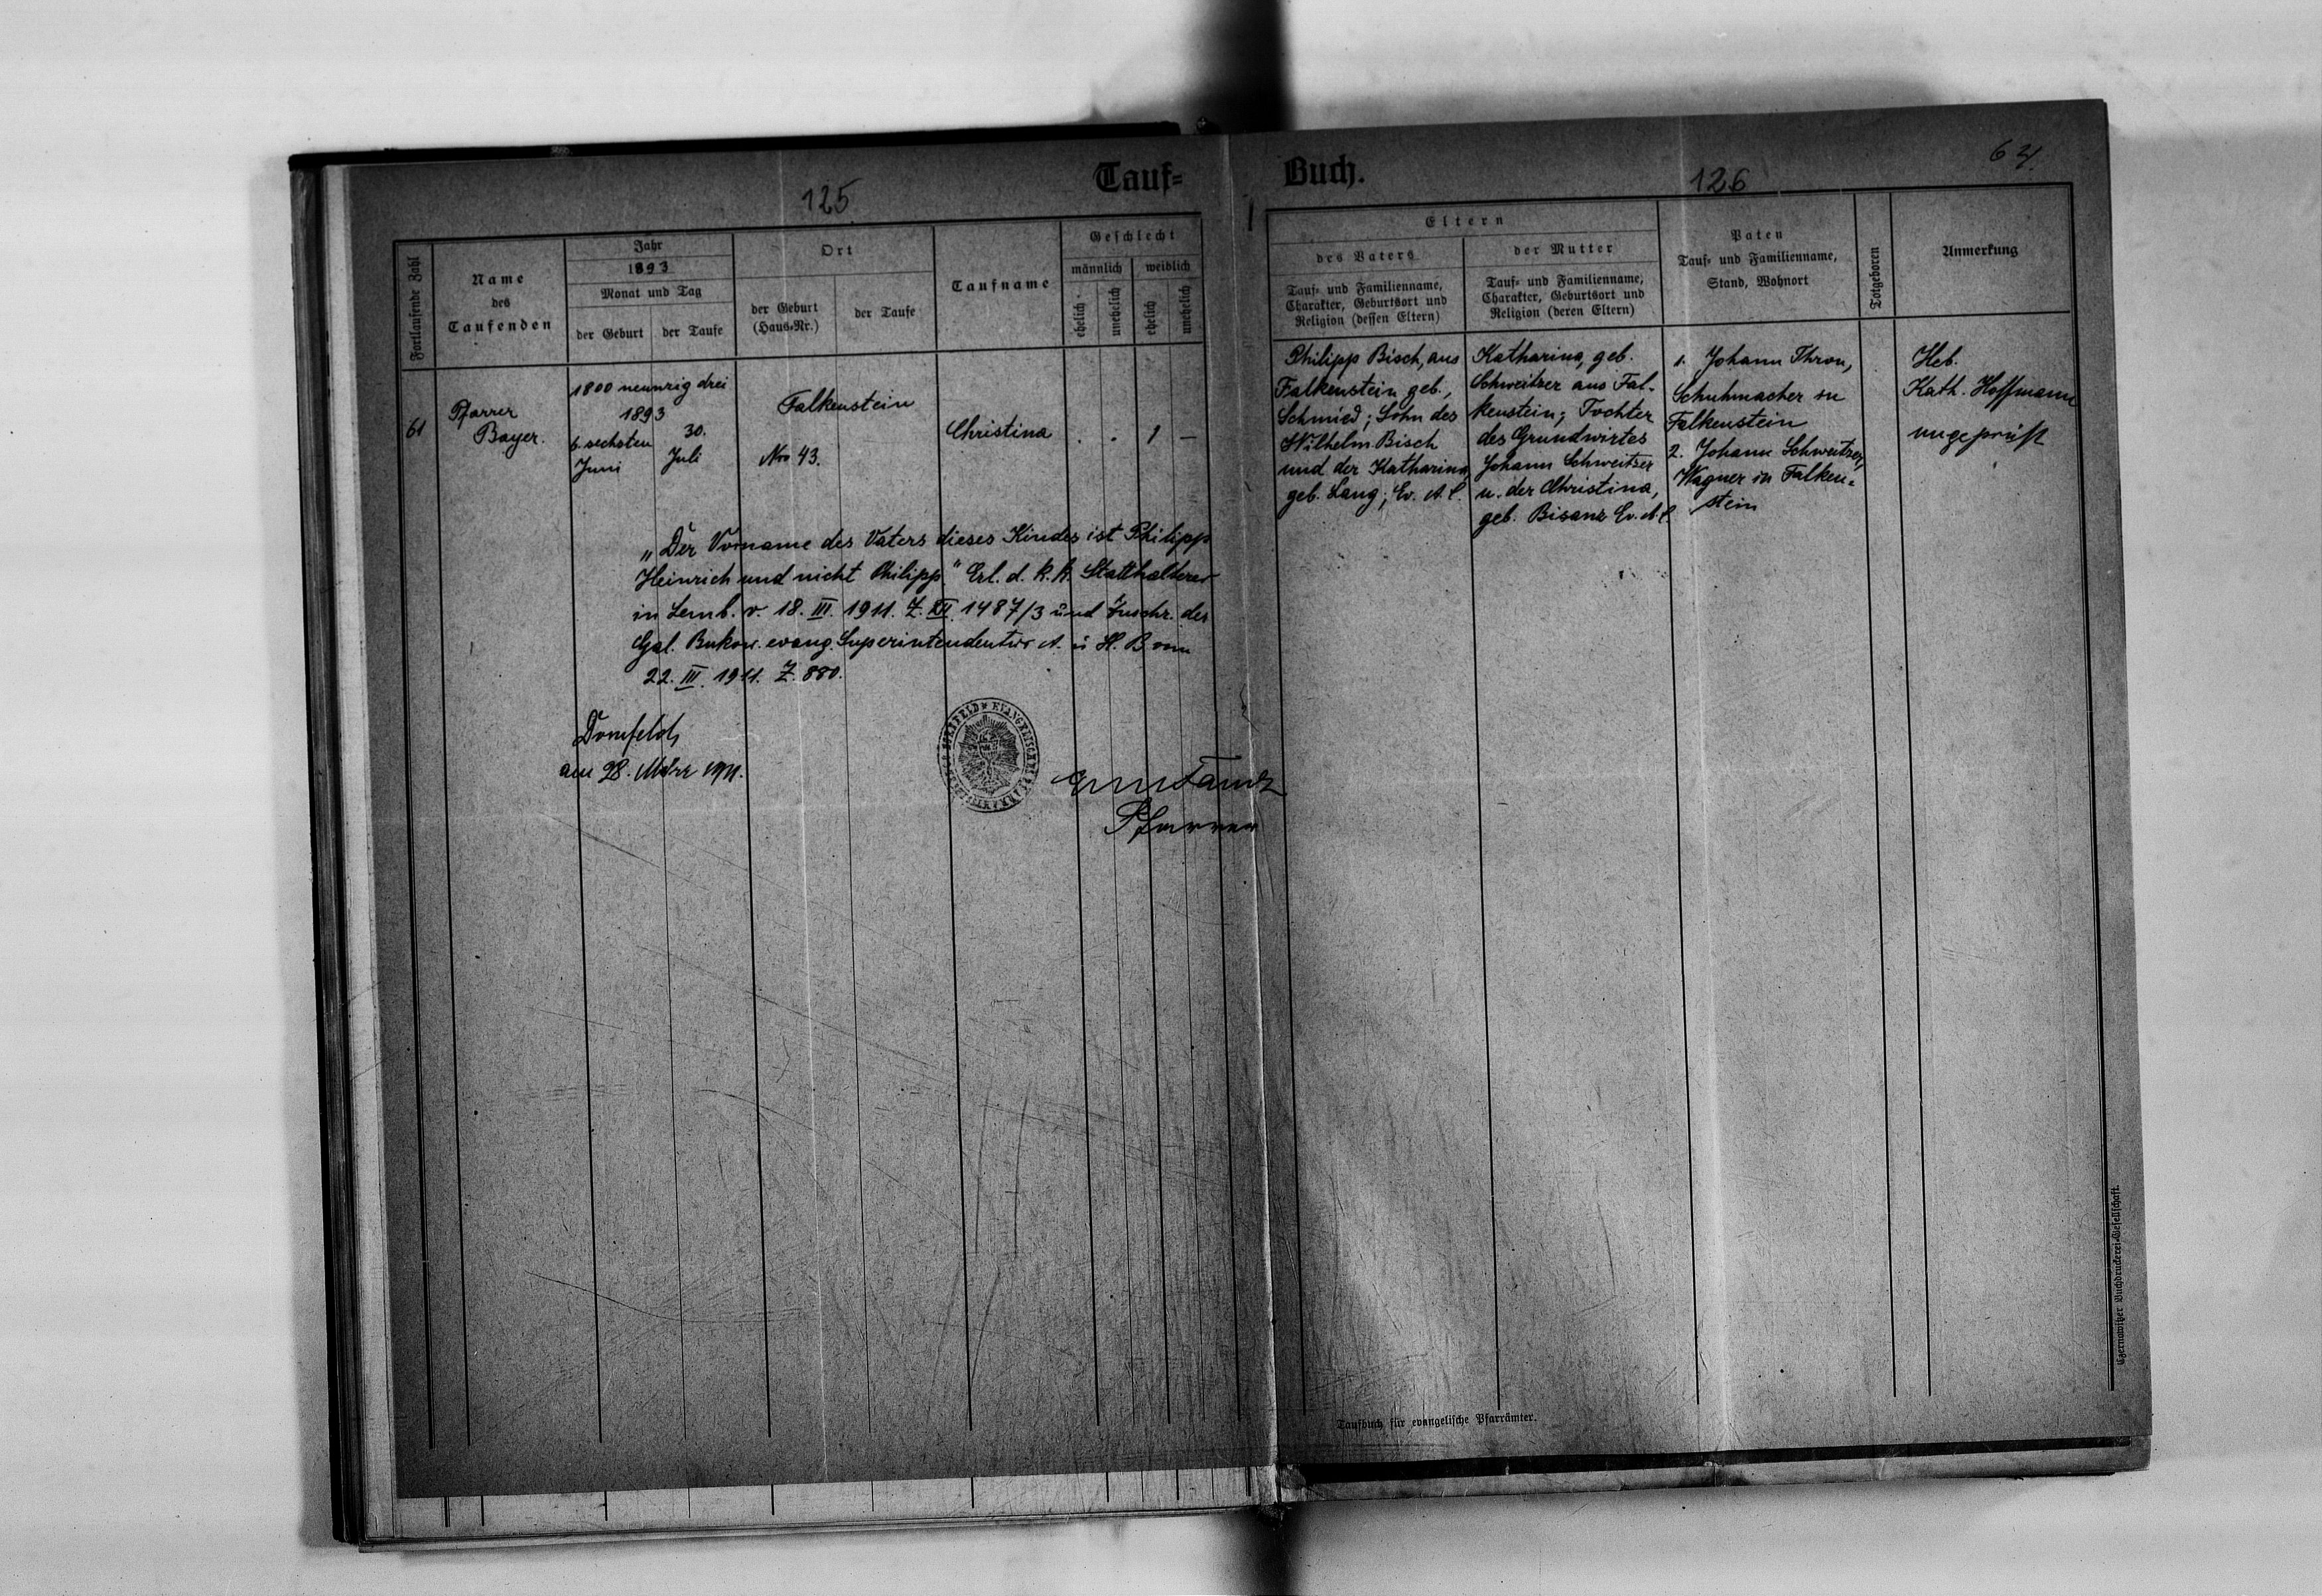 Tauf=
Buch.
125
126
64
Fortlaufende Zahl
Name
des
Taufenden
Jahr
1893
Monat und Tag
der Geburt
der Taufe
Ort
der Geburt
(Haus-Nr.)
der Taufe
Taufname
Geschlecht
männlich
weiblich
ehelich
unehelich
ehelich
unehelich
Eltern
des Vaters
Tauf- und Familienname,
Charakter, Geburtsort und
Religion (dessen Eltern)
der Mutter
Tauf- und Familienname,
Charakter, Geburtsort und
Religion (deren Eltern)
Paten
Tauf- und Familienname,
Stand, Wohnort
Totgeboren
Anmerkung
61
Pfarrer
Bayer.
1800 neunzig drei
1893
6. sechsten
Juni
30.
Juli
Falkenstein
Nro 43.
Christina
. . 1 —
Philipp Bisch, aus
Falkenstein geb.,
Schmied; Sohn des
Wilhelm Bisch
und der Katharina
geb. Lang; Ev. A. C.
Katharina, geb.
Schweitzer aus Fal-
kenstein; Tochter
des Grundwirtes
Johann Schweitzer
u. der Christina,
geb. Bisanz Ev. A. C.
1. Johann Thron,
Schuhmacher in
Falkenstein
2. Johann Schweitzer,
Wagner in Falken=
stein
Heb.
Kath. Hoffmann
ungeprüft
„Der Vorname des Vaters dieses Kindes ist Philipp
Heinrich und nicht Philipp." Erl. d. k. k. Statthalterei
in Lemb. v. 18. III. 1911. Z. XII 1487/3 und Zuschr. der
Gal. Bukow. evang. Superintendentur A. u H. B. vom
22. III. 1911. Z. 880.
Dornfeld,
am 28. März 1911.
Pfarrer
Taufbuch für evangelische Pfarrämter.
Czernowitzer Buchdruckerei-Gesellschaft.